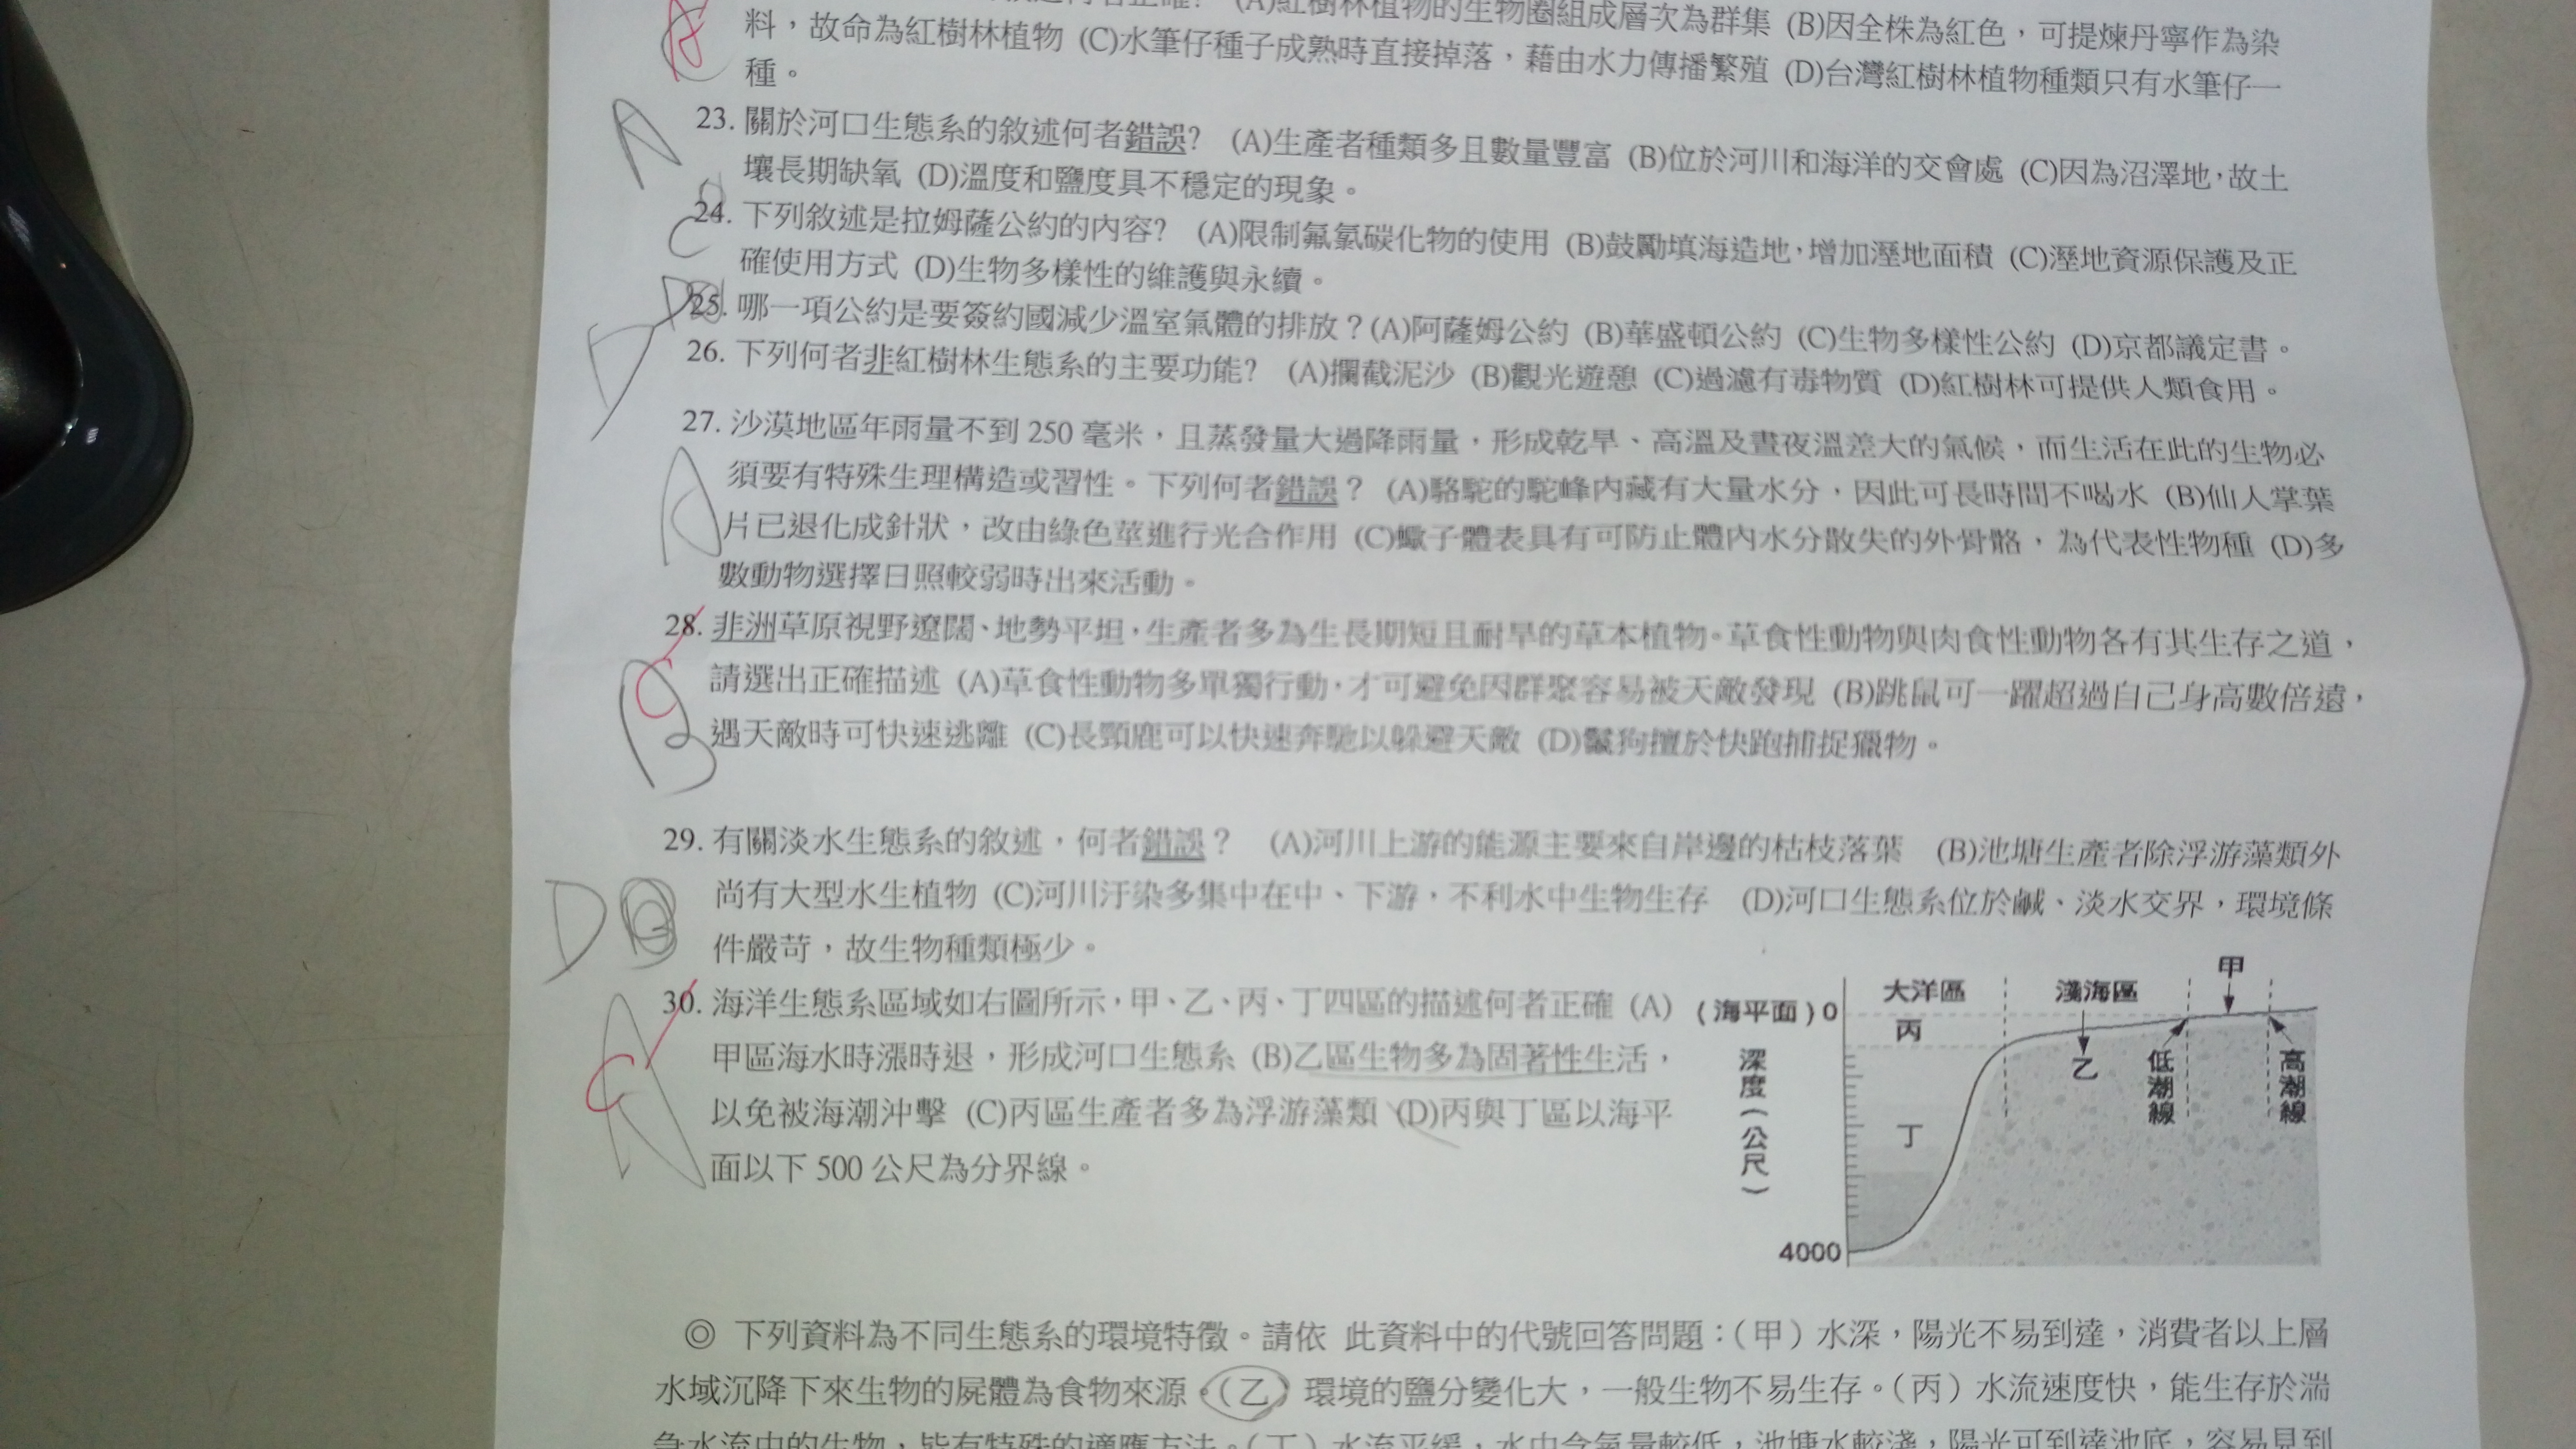 (A)紅樹林植物的生物圈組成層次為群集 (B)因全株為紅色，可提煉丹寧作為染
料，故命為紅樹林植物 (C)水筆仔種子成熟時直接掉落，藉由水力傳播繁殖 (D)台灣紅樹林植物種類只有水筆仔一
種。
A
23. 關於河口生態系的敘述何者錯誤? (A)生產者種類多且數量豐富 (B)位於河川和海洋的交會處 (C)因為沼澤地，故土
壤長期缺氧 (D)溫度和鹽度具不穩定的現象。
C
24. 下列敘述是拉姆薩公約的內容? (A)限制氟氯碳化物的使用 (B)鼓勵填海造地，增加溼地面積 (C)溼地資源保護及正
確使用方式 (D)生物多樣性的維護與永續。
D
25. 哪一項公約是要簽約國減少溫室氣體的排放？(A)阿薩姆公約 (B)華盛頓公約 (C)生物多樣性公約 (D)京都議定書。
D
26. 下列何者非紅樹林生態系的主要功能? (A)攔截泥沙 (B)觀光遊憩 (C)過濾有毒物質 (D)紅樹林可提供人類食用。
27. 沙漠地區年雨量不到 250 毫米，且蒸發量大過降雨量，形成乾旱、高溫及晝夜溫差大的氣候，而生活在此的生物必
A
須要有特殊生理構造或習性。下列何者錯誤？ (A)駱駝的駝峰內藏有大量水分，因此可長時間不喝水 (B)仙人掌葉
片已退化成針狀，改由綠色莖進行光合作用 (C)蠍子體表具有可防止體內水分散失的外骨骼，為代表性物種 (D)多
數動物選擇日照較弱時出來活動。
28. 非洲草原視野遼闊、地勢平坦，生產者多為生長期短且耐旱的草本植物。草食性動物與肉食性動物各有其生存之道，
C B
請選出正確描述 (A)草食性動物多單獨行動，才可避免因群聚容易被天敵發現 (B)跳鼠可一躍超過自己身高數倍遠，
遇天敵時可快速逃離 (C)長頸鹿可以快速奔馳以躲避天敵 (D)鬣狗擅於快跑捕捉獵物。
29. 有關淡水生態系的敘述，何者錯誤？ (A)河川上游的能源主要來自岸邊的枯枝落葉 (B)池塘生產者除浮游藻類外
D
尚有大型水生植物 (C)河川汙染多集中在中、下游，不利水中生物生存 (D)河口生態系位於鹹、淡水交界，環境條
件嚴苛，故生物種類極少。
30. 海洋生態系區域如右圖所示，甲、乙、丙、丁四區的描述何者正確 (A)
C A
甲區海水時漲時退，形成河口生態系 (B)乙區生物多為固著性生活，
以免被海潮沖擊 (C)丙區生產者多為浮游藻類 (D)丙與丁區以海平
面以下 500 公尺為分界線。
甲
大洋區 淺海區
(海平面) 0
丙
深度(公尺)
乙
低潮線
高潮線
丁
4000
◎ 下列資料為不同生態系的環境特徵。請依 此資料中的代號回答問題：(甲) 水深，陽光不易到達，消費者以上層
水域沉降下來生物的屍體為食物來源。(乙) 環境的鹽分變化大，一般生物不易生存。(丙) 水流速度快，能生存於湍
急水流中的生物，皆有特殊的適應方法。(丁) 水流平緩，水中含氧量較低，池塘水較淺，陽光可到達池底，容易見到